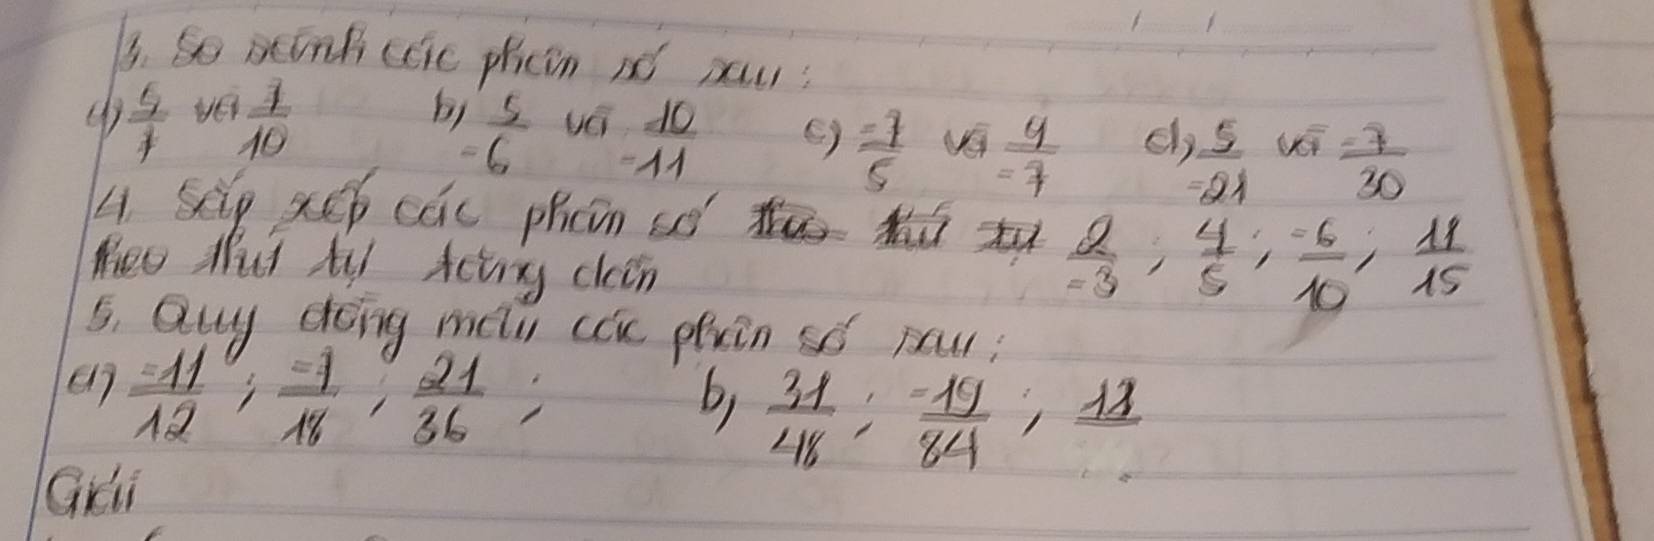 3. So sánh các phân số sau:
a) 5/7 và 7/10 b) 5/-6 và 10/-11 c) -7/5 và 9/-7 d) 5/-21 và -7/30
4. Sắp xếp các phân số 2/-3 ; 4/5 ; -6/10 ; 11/15
theo thứ tự tăng dần
5. Quy đồng mẫu các phân số sau:
a) -11/12 ; -7/18 ; 21/36 ; b) 31/48 ; -19/84 ;
Giải